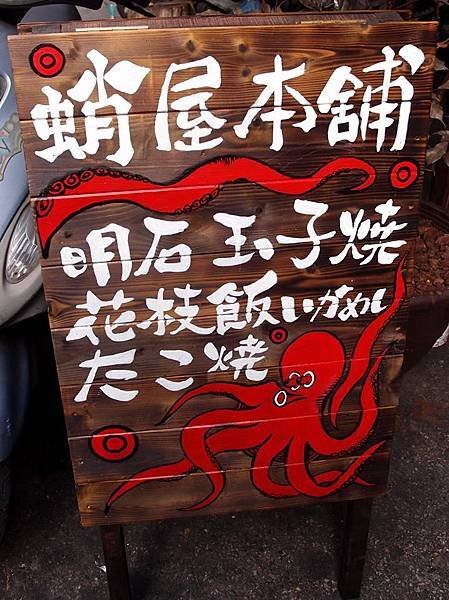 蛸屋本舖
明石玉子焼
花枝飯いかめし
たこ焼